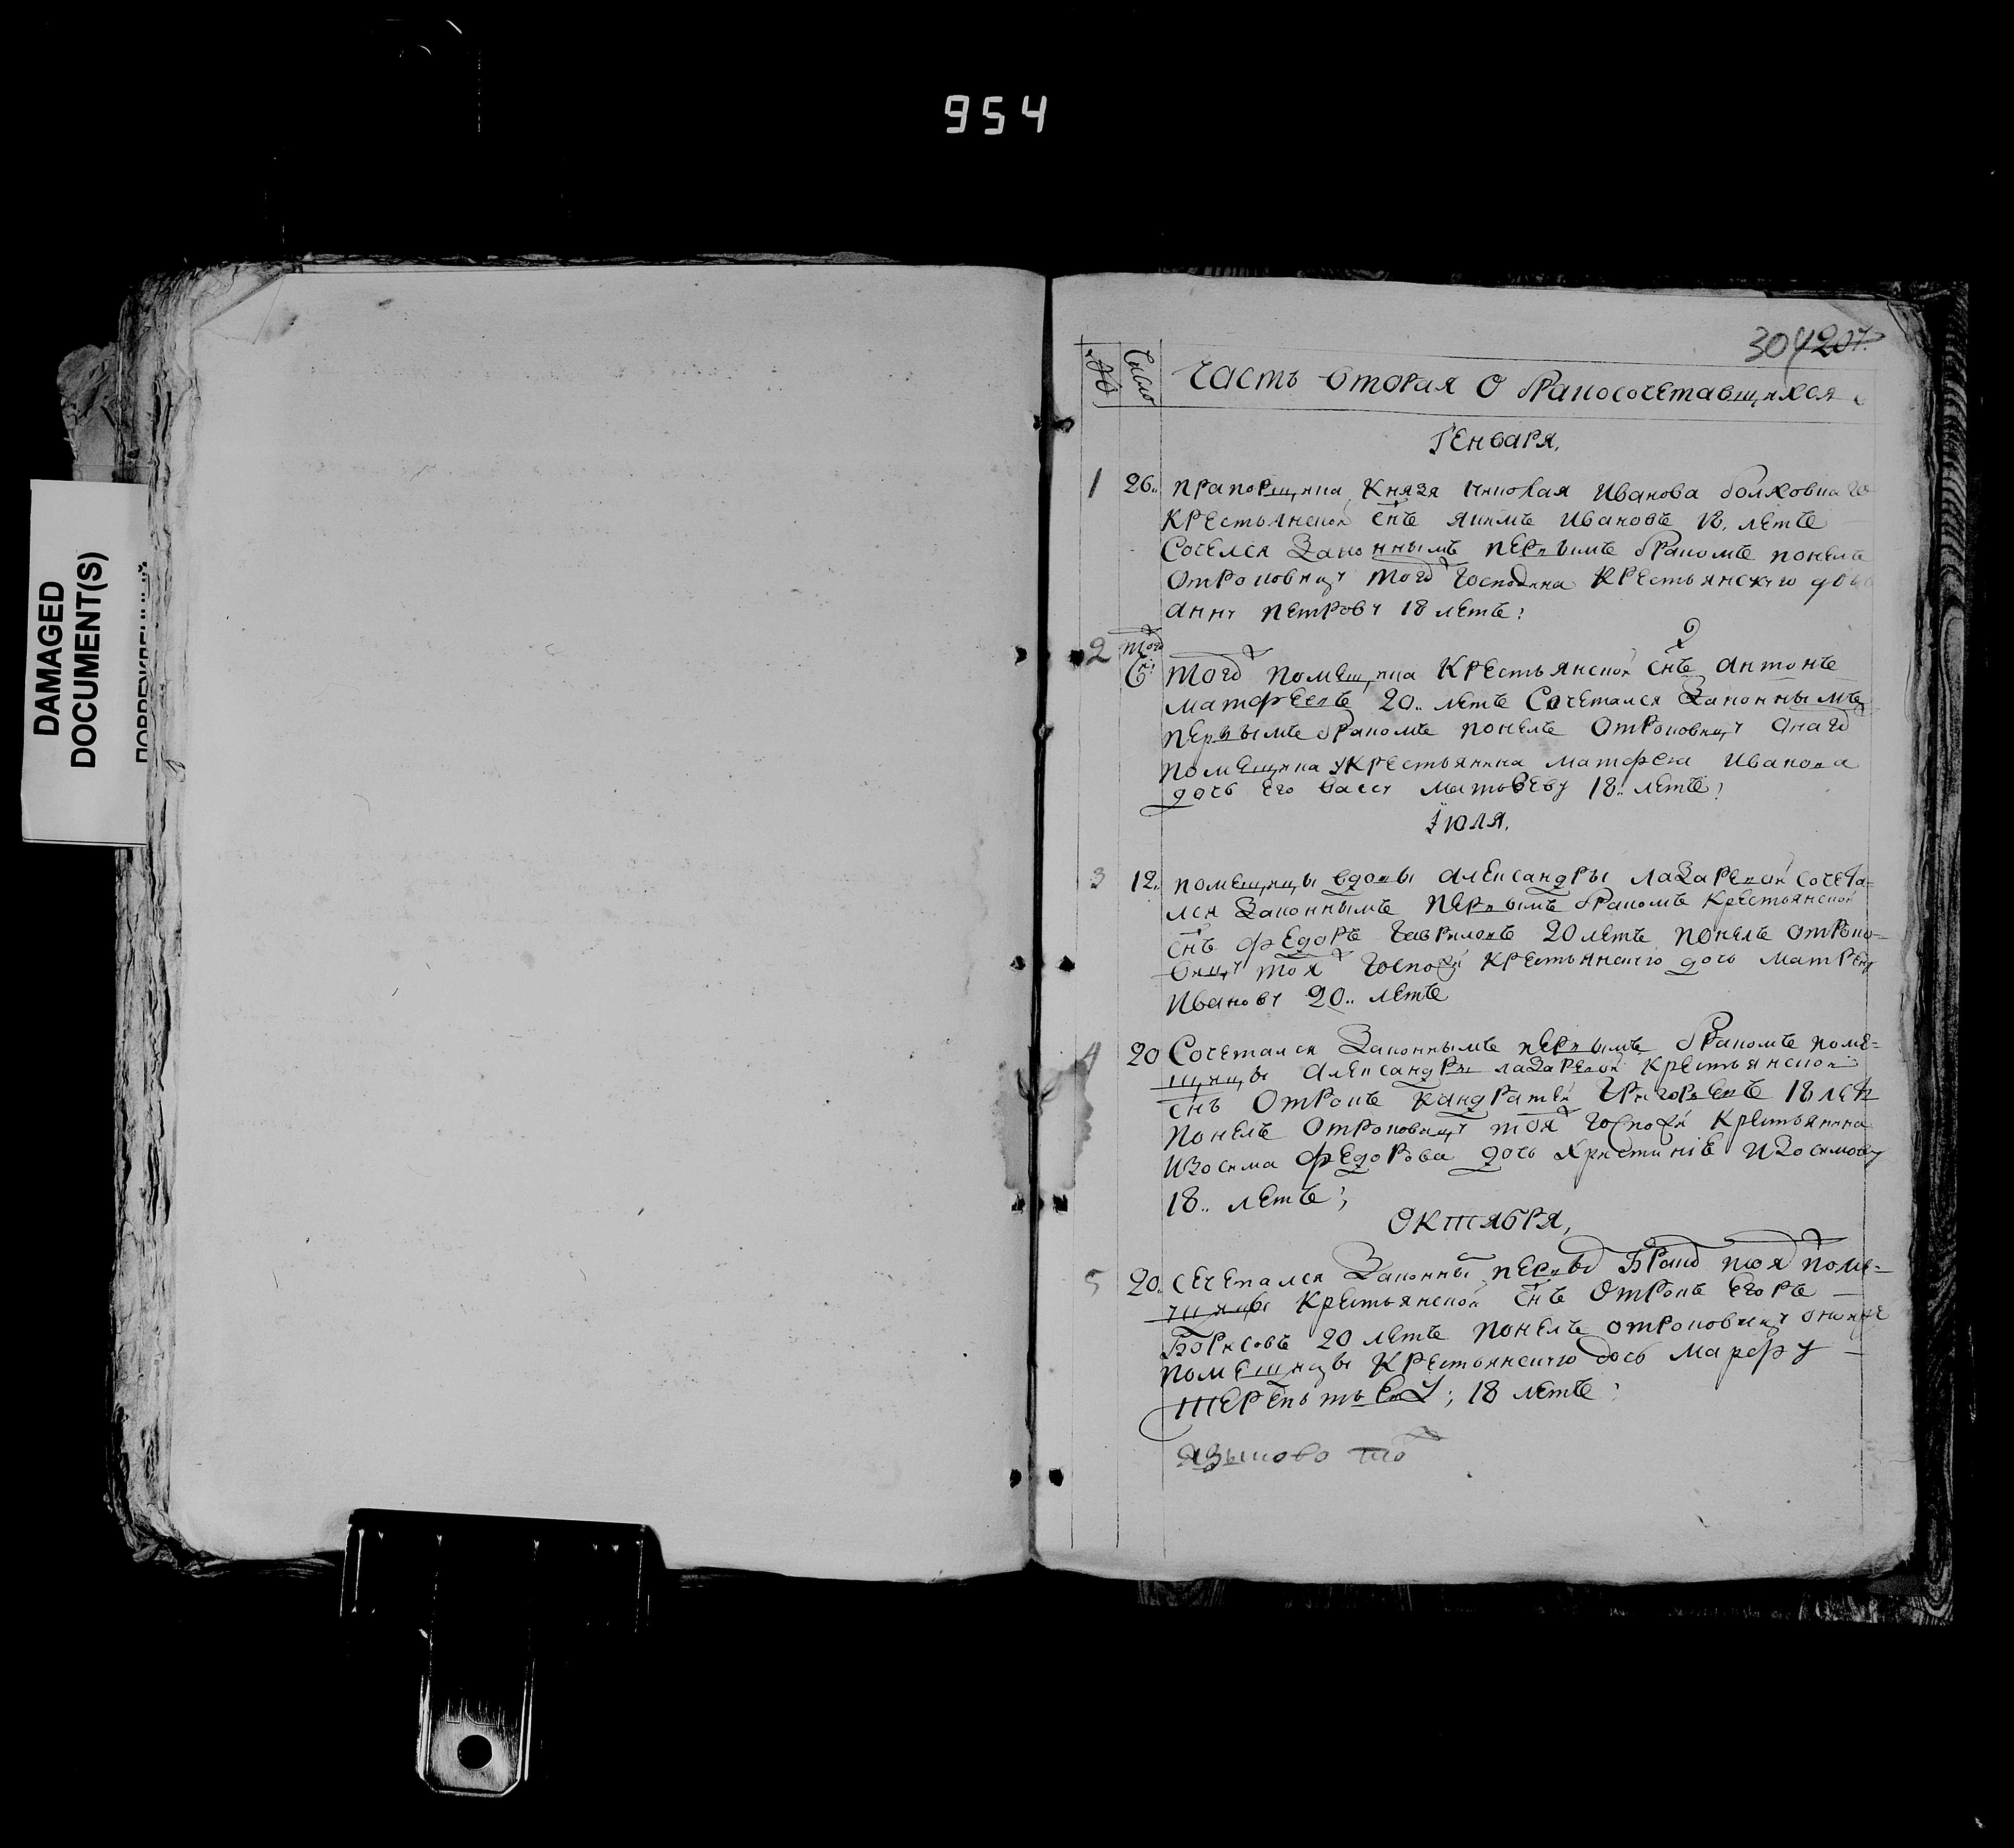 954
DAMAGED
DOCUMENT(S)
304 207.
№ Число
Часть вторая о бракосочетавшихся
Генваря,
1 26.. прапорщика Князя Николая Иванова болховскаго
крестьянской снъ якимъ Ивановъ 18. летъ
Сочелся Законнымъ первымъ бракомъ понелъ
отроковицу того Господина крестьянскую дочь
анну петрову 18 летъ:
2 того
Чи: того помещика Крестьянской снъ антонъ
матфеевъ 20.. летъ Сочетался Законнымъ
первымъ бракомъ понелъ отроковицу онаго
помещика укрестьянина матфея Иванова
дочь его вассу матьвеву 18.. летъ;
Июля.
3 12.. помещицы вдовы александры лазаревой сочета-
лся Законнымъ первымъ бракомъ крестьянской
снъ федоръ Гавриловъ 20 летъ понелъ отроко-
вицу тоя Госпожи крестьянскую дочь матрену
Иванову 20.. летъ
4 20 Сочетался Законнымъ первымъ бракомъ поме-
щицы александры лазаревой крестьянской
снъ отрокъ кандратей Григорьевъ 18 летъ
понелъ отроковицу тоя госпожи крестьянина
Изосима федорова дочь христинiю Изосимову
18.. летъ;
октября,
5 20.. сечетался Законны первы Брако тоя поме-
щицы крестьянской снъ отрокъ егоръ
Борисовъ 20 летъ понелъ отроковицу оной же
помещицы крестьянскую дось марфу
терентьеву; 18 летъ:
языково то